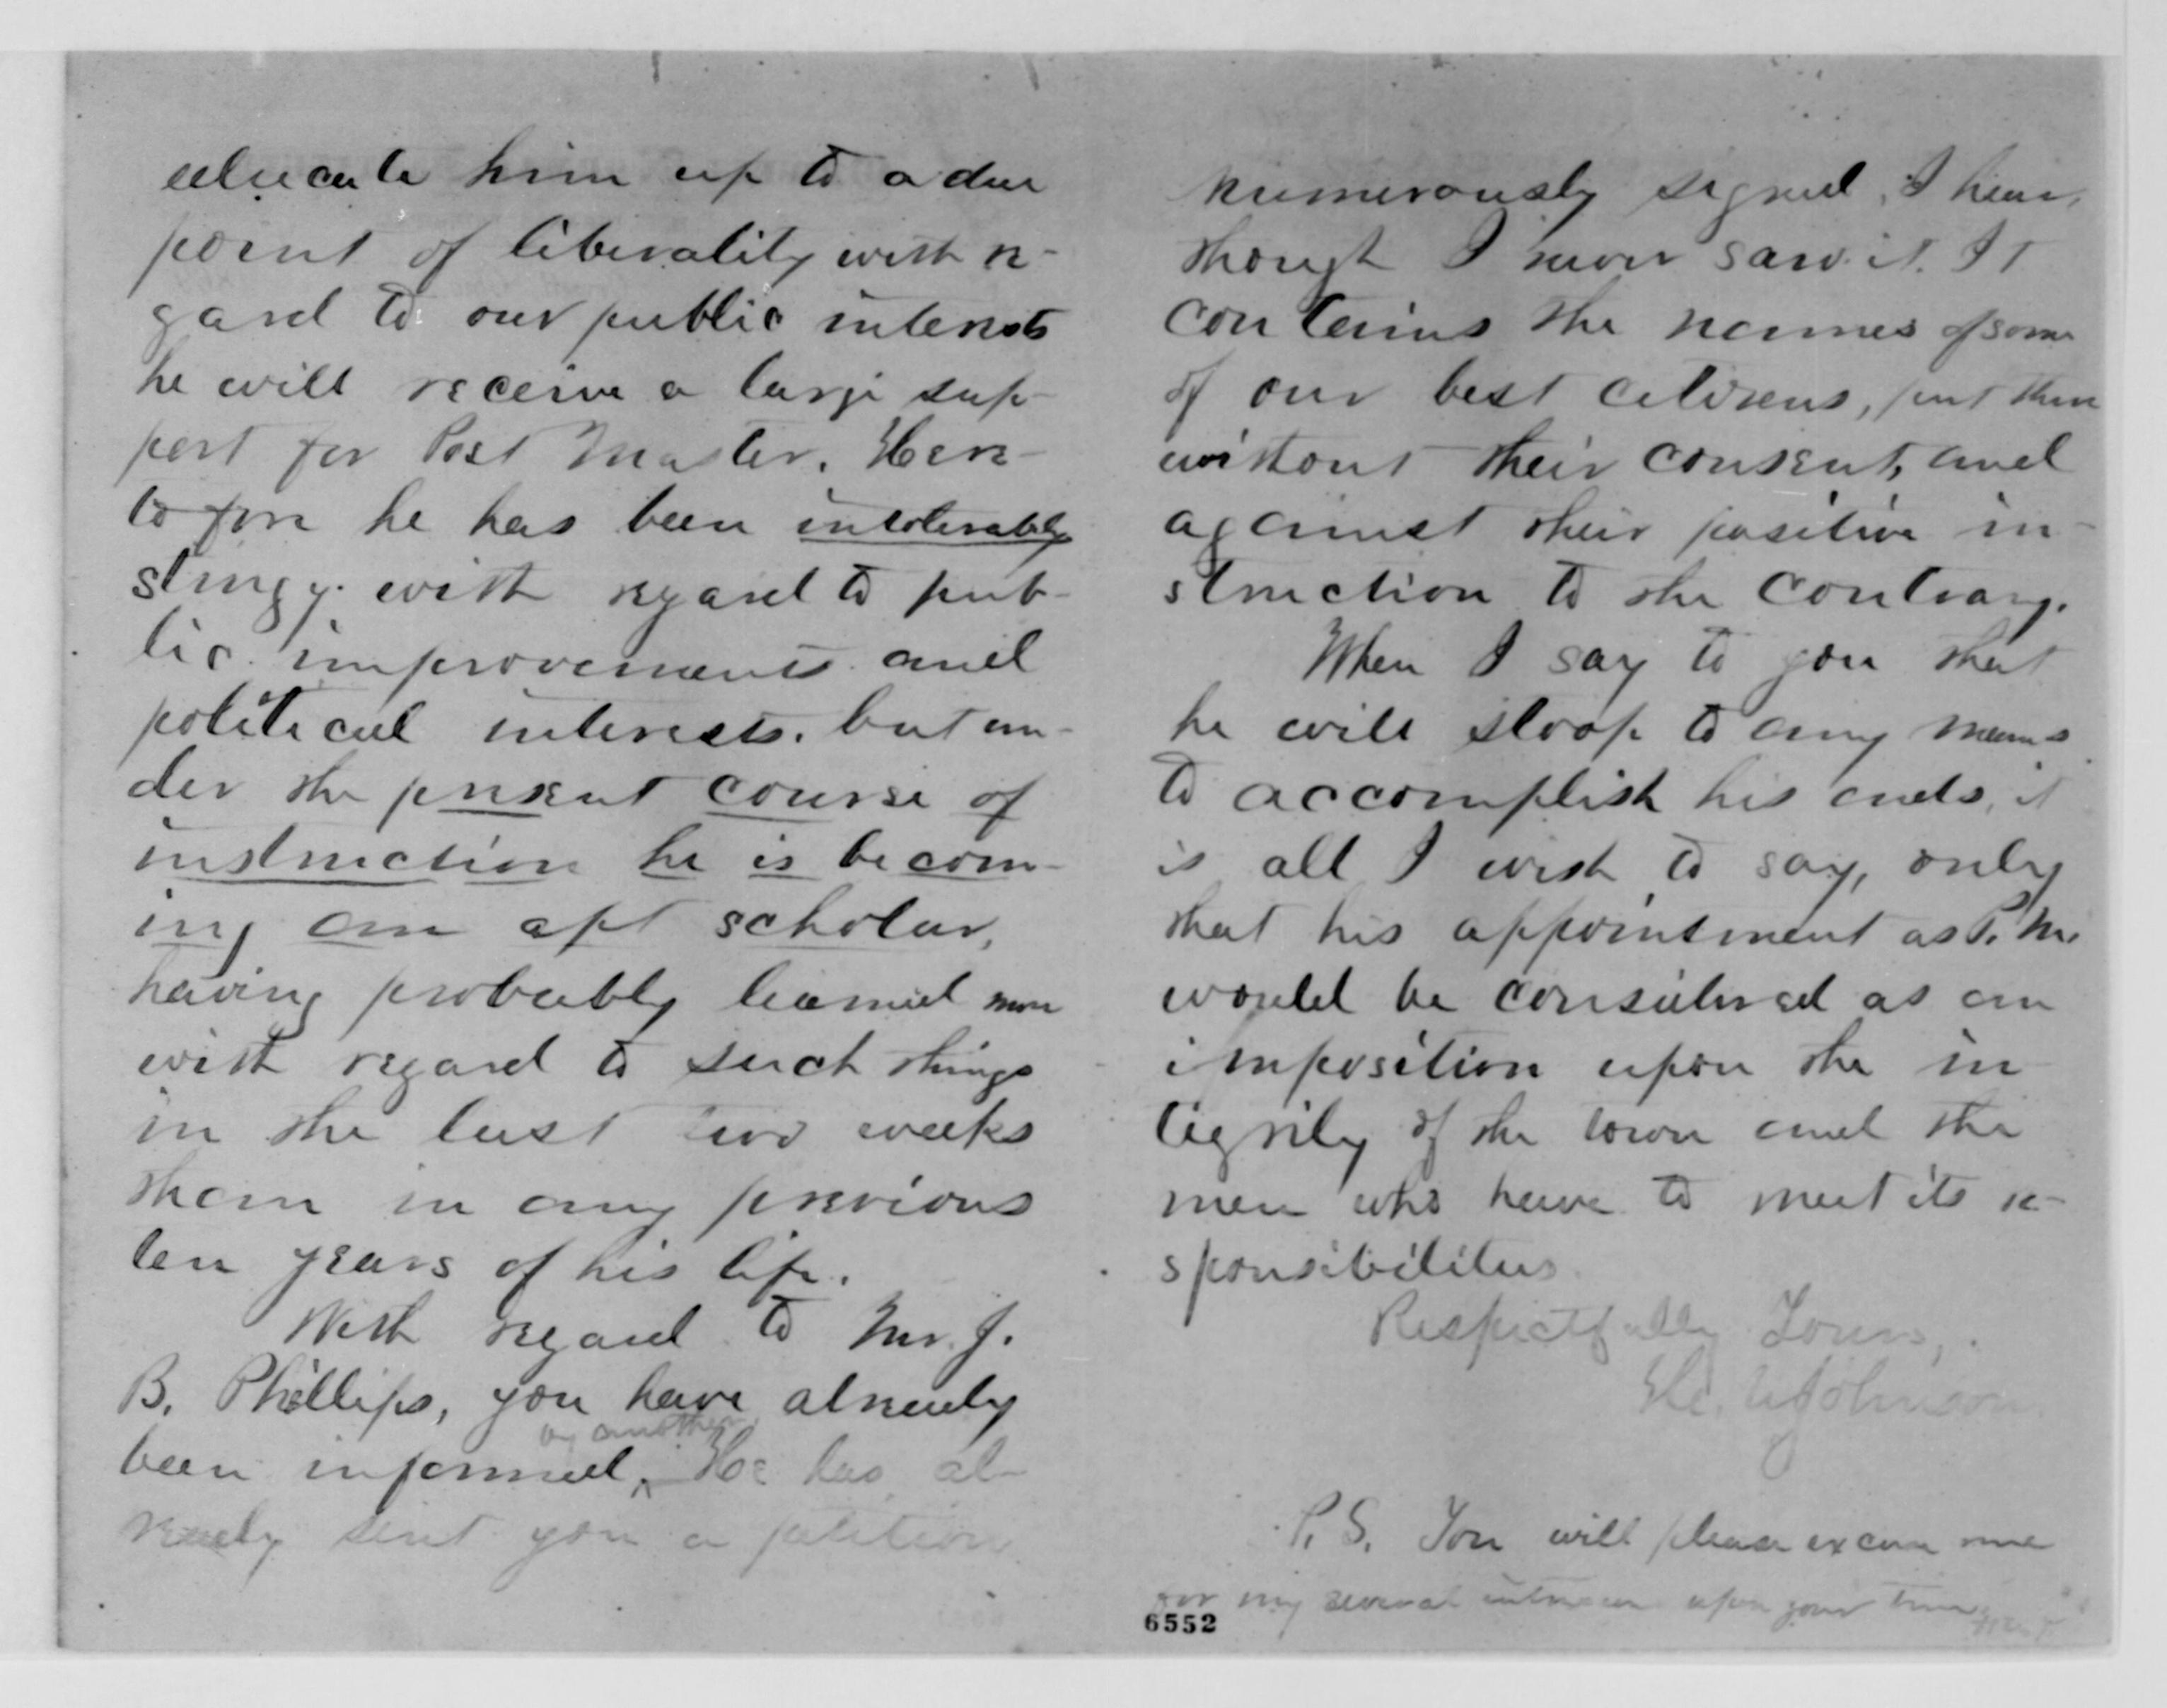 educate him up to a due
point of liberality with re-
gard to our public interests
he will receive a large sup-
port for Post Master. Here-
tofore he has been intolerably
stingy with regard to pub-
lic improvements and
political interests. but un-
der the present course of
instruction he is becom-
ing an apt scholar,
having probably learned more
with regard to such things
in the last two weeks
than in any previous
ten years of his life.
With regard to Mr. J.
B. Phillips, you have already
by another
been informed, He has al-
ready sent you a petition
numerously signed, I hear,
though I never saw it. It
contains the names of some
of our best citizens, put there
without their consent, and
against their positive in-
struction to the contrary.
When I say to you that
he will stoop to any means
to accomplish his ends, it
is all I wish to say, only
that his appointment as P. M.
would be considered as an
imposition upon the in
tegrity of the town and the
men who have to meet its re-
sponsibilities
Respectfully Yours,
Johnson.
P.S. You will please excuse me
for my several upon your time
6552